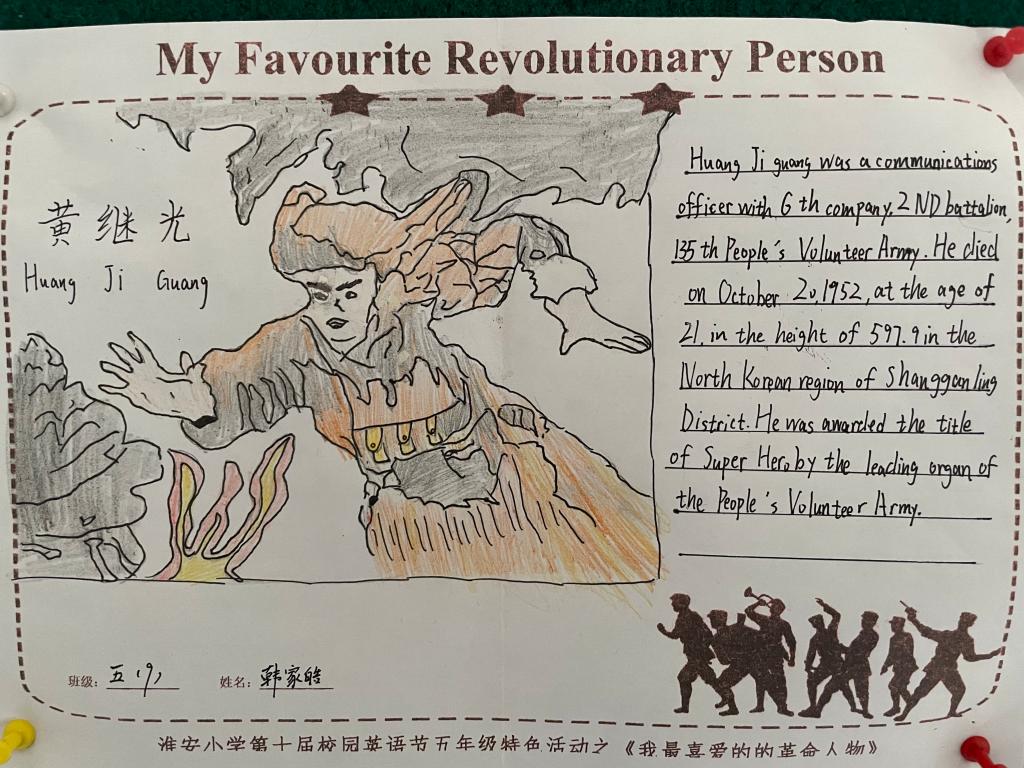 My Favourite Revolutionary Person
黄继光
Huang Ji Guang
Huang Ji guang was a communications
officer with 6 th company, 2 ND battalion,
135 th People's Volunteer Army. He died
on October 20, 1952, at the age of
21, in the height of 597.9 in the
North Korean region of Shangganling
District. He was awarded the title
of Super Hero by the leading organ of
the People's Volunteer Army.
班级: 五(9) 姓名: 韩家皓
淮安小学第十届校园英语节五年级特色活动之《我最喜爱的的革命人物》